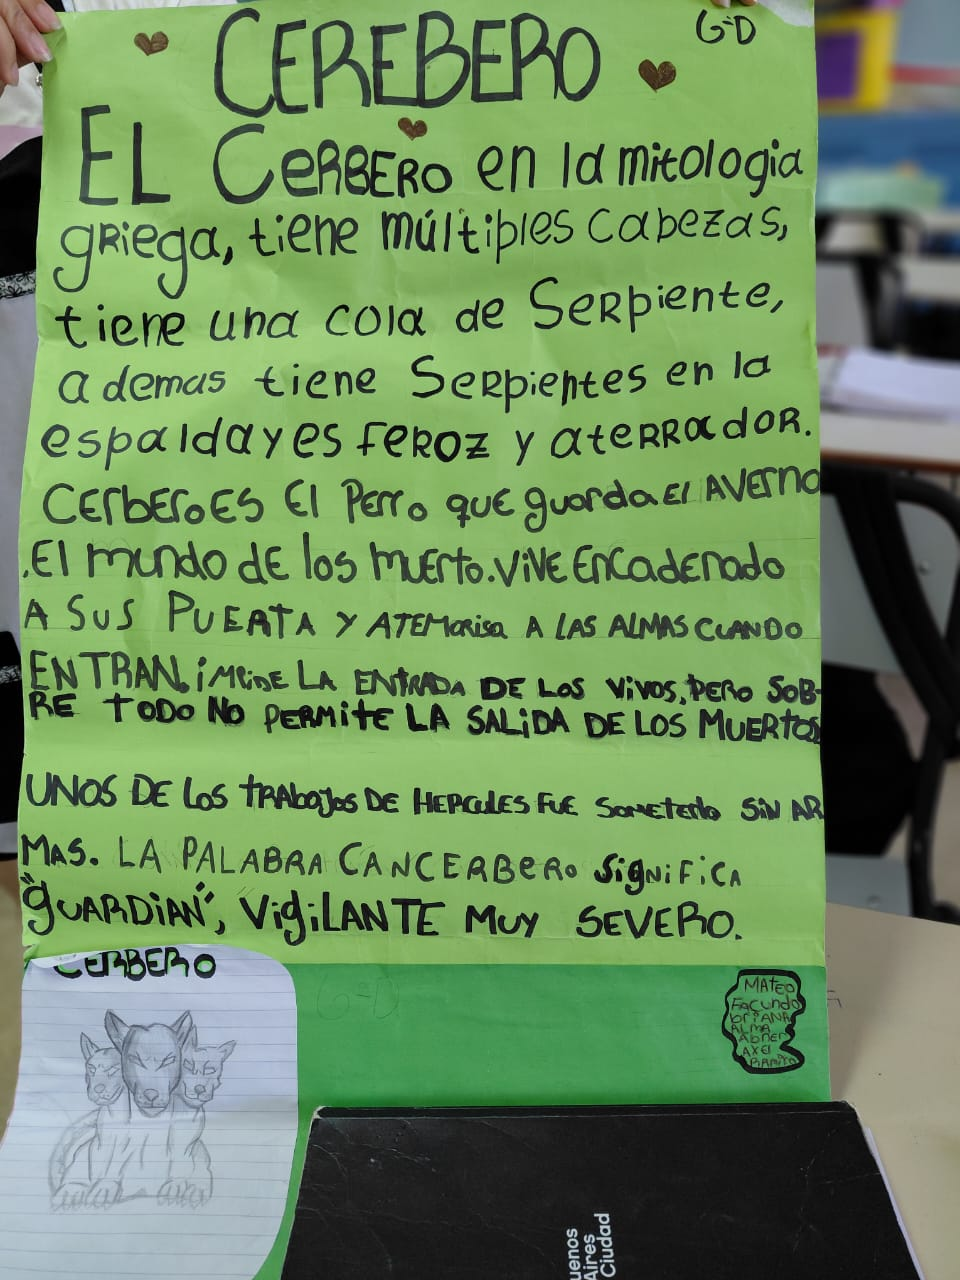 6°D
CEREBERO
EL CERBERO en la mitologia
griega, tiene múltiples cabezas,
tiene una cola de serpiente,
ademas tiene serpientes en la
espalda y es feroz y aterrador.
Cerbero es el perro que guarda el Averno
.El mundo de los muerto. Vive encadenado
A SUS PUERTA Y ATEMorisa A LAS ALMAS CUANDO
ENTRAN, iMPiDE LA ENTRADA DE LOS VIVOS, PERO SOB-
RE TODO NO PERMITE LA SALIDA DE LOS MUERTOS
UNOS DE LOS TRAbajos DE HERCULES FUE SOMETERlo SiN AR
MAS. LA PALABRA CANCERBERO SigNiFiCA
"gUARDiAN", VigiLANTE MUY SEVERO.
CERBERO
6°D
MATEO
FACUNDO
briANA
ALMA
Abner
AXEl
uenos
Aires
Ciudad